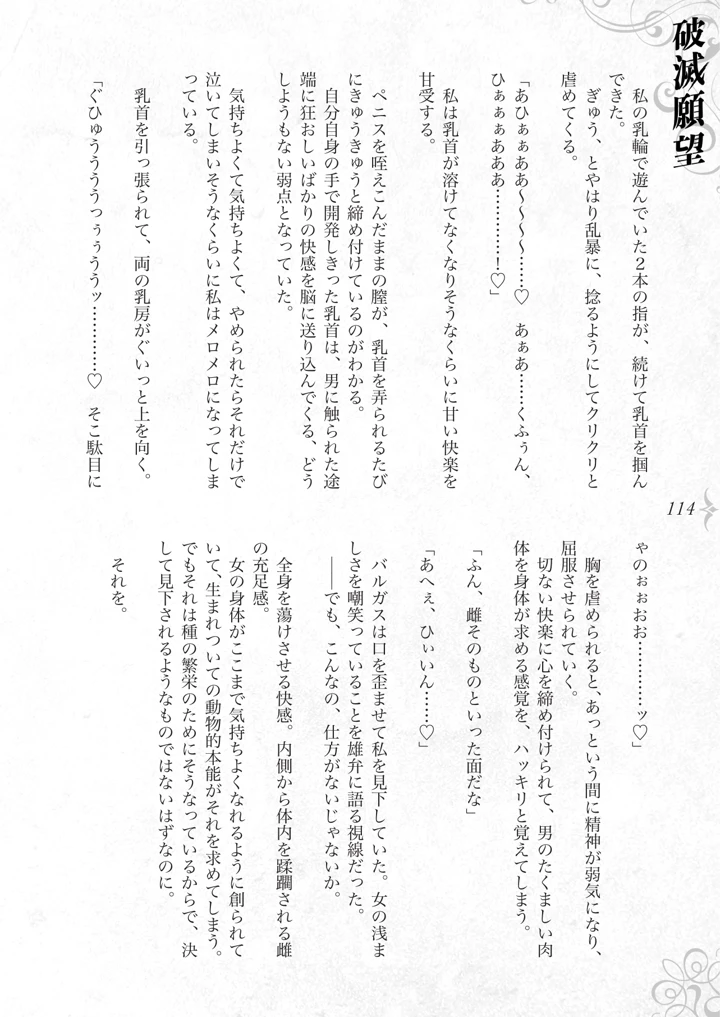 破滅願望
　私の乳輪で遊んでいた２本の指が、続けて乳首を掴ん
できた。
　ぎゅう、とやはり乱暴に、捻るようにしてクリクリと
虐めてくる。
「あひぁぁああ～～～～……♡　あぁあ……くふぅん、
ひぁぁぁあああ…………！♡」
　私は乳首が溶けてなくなりそうなくらいに甘い快楽を
甘受する。
　ペニスを咥えこんだままの膣が、乳首を弄られるたび
にきゅうきゅうと締め付けているのがわかる。
　自分自身の手で開発しきった乳首は、男に触られた途
端に狂おしいばかりの快感を脳に送り込んでくる、どう
しようもない弱点となっていた。
　気持ちよくて気持ちよくて、やめられたらそれだけで
泣いてしまいそうなくらいに私はメロメロになってしま
っている。
　乳首を引っ張られて、両の乳房がぐいっと上を向く。
「ぐひゅうううっぅぅううッ…………♡　そこ駄目に
ゃのぉぉおお…………ッ♡」
　胸を虐められると、あっという間に精神が弱気になり、
屈服させられていく。
　切ない快楽に心を締め付けられて、男のたくましい肉
体を身体が求める感覚を、ハッキリと覚えてしまう。
「ふん、雌そのものといった面だな」
「あへぇ、ひぃいん……♡」
　バルガスは口を歪ませて私を見下していた。女の浅ま
しさを嘲笑っていることを雄弁に語る視線だった。
　――でも、こんなの、仕方がないじゃないか。
　全身を蕩けさせる快感。内側から体内を蹂躙される雌
の充足感。
　女の身体がここまで気持ちよくなれるように創られて
いて、生まれついての動物的本能がそれを求めてしまう。
でもそれは種の繁栄のためにそうなっているからで、決
して見下されるようなものではないはずなのに。
　それを。
114